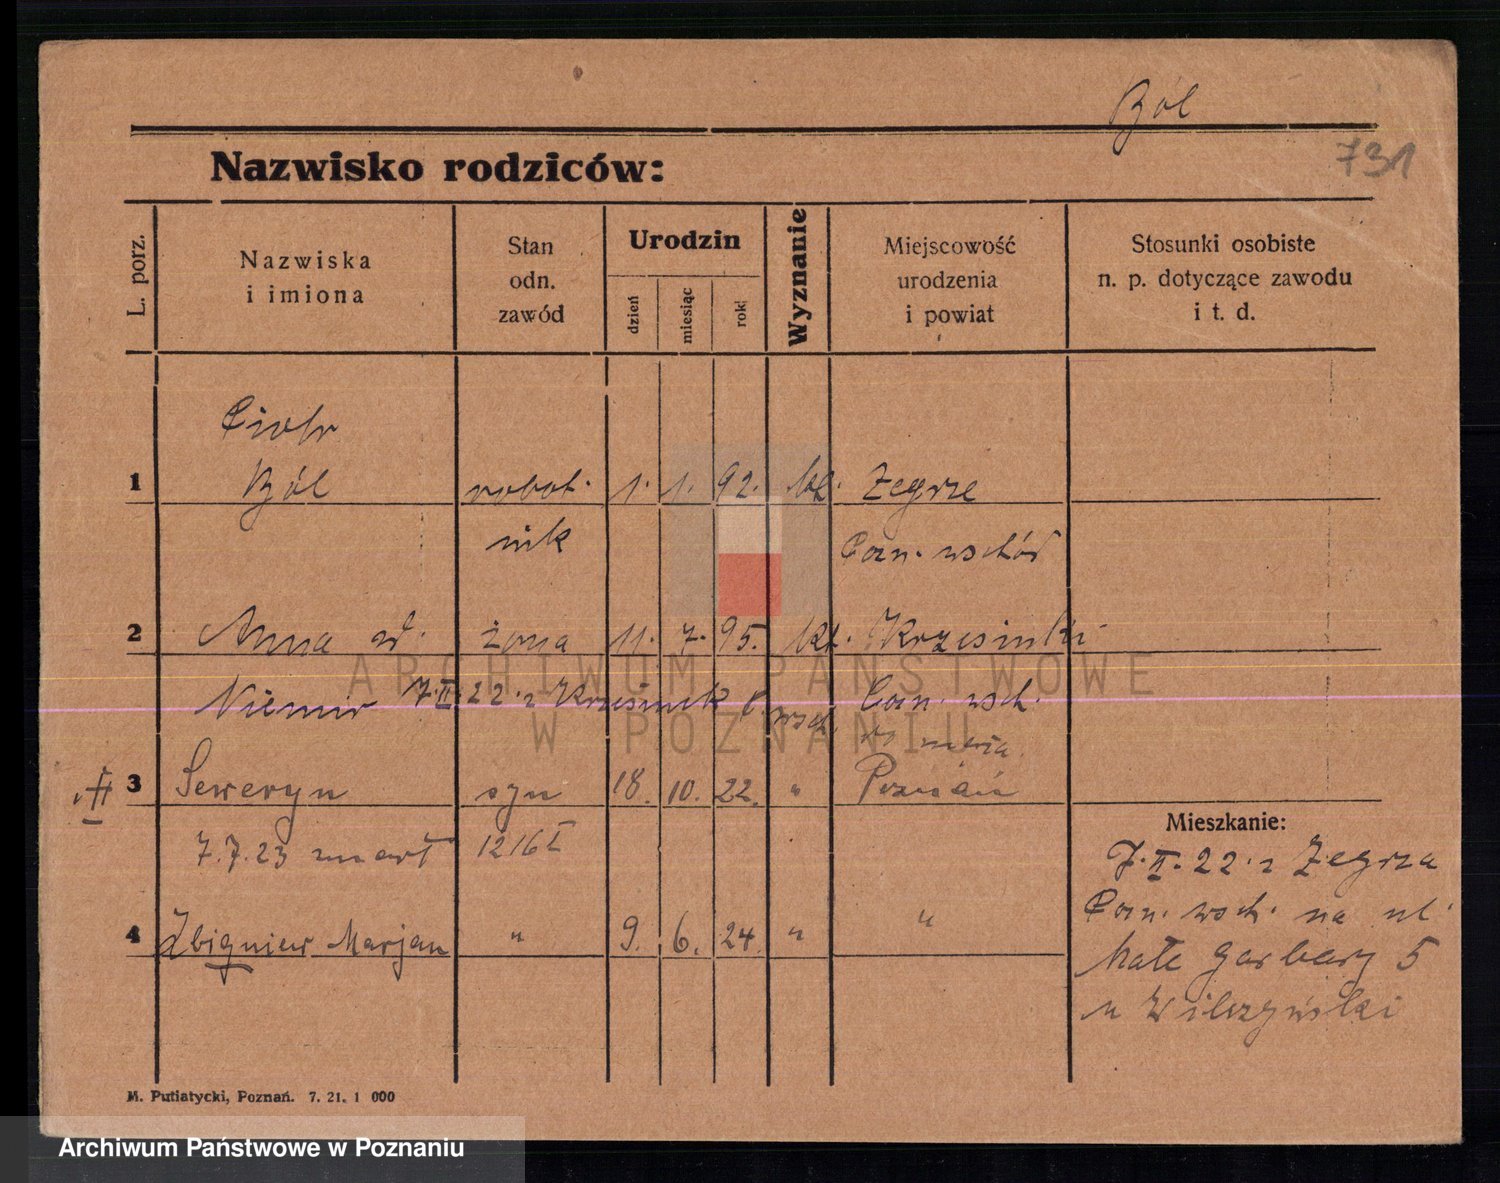 Ból
731
Nazwisko rodziców:
L. porz.
Nazwiska
i imiona
Stan
odn.
zawód
Urodzin
dzień
miesiąc
rok
Wyznanie
Miejscowość
urodzenia
i powiat
Stosunki osobiste
n. p. dotyczące zawodu
i t. d.
Piotr
1 Ból robot. 1. 1. 92. kt. Zegrze
nik Pozn. wschód
2 Anna zd. żona 11. 7. 95. kt. Krzesinki
Niemir 7.II.22. z Krzesinek P. wsch. Pozn. wsch.
3 Seweryn syn 18. 10. 22. " Poznań
7.7.23 zmarł 1216 I
4 Zbigniew Marjan " 9. 6. 24. " "
Mieszkanie:
7.II.22. z Zegrza
Pozn. wsch. na ul.
Małe Garbary 5
u Wilczyński
M. Putiatycki, Poznań. 7. 21. 1 000
ARCHIWUM PAŃSTWOWE
W POZNANIU
Archiwum Państwowe w Poznaniu